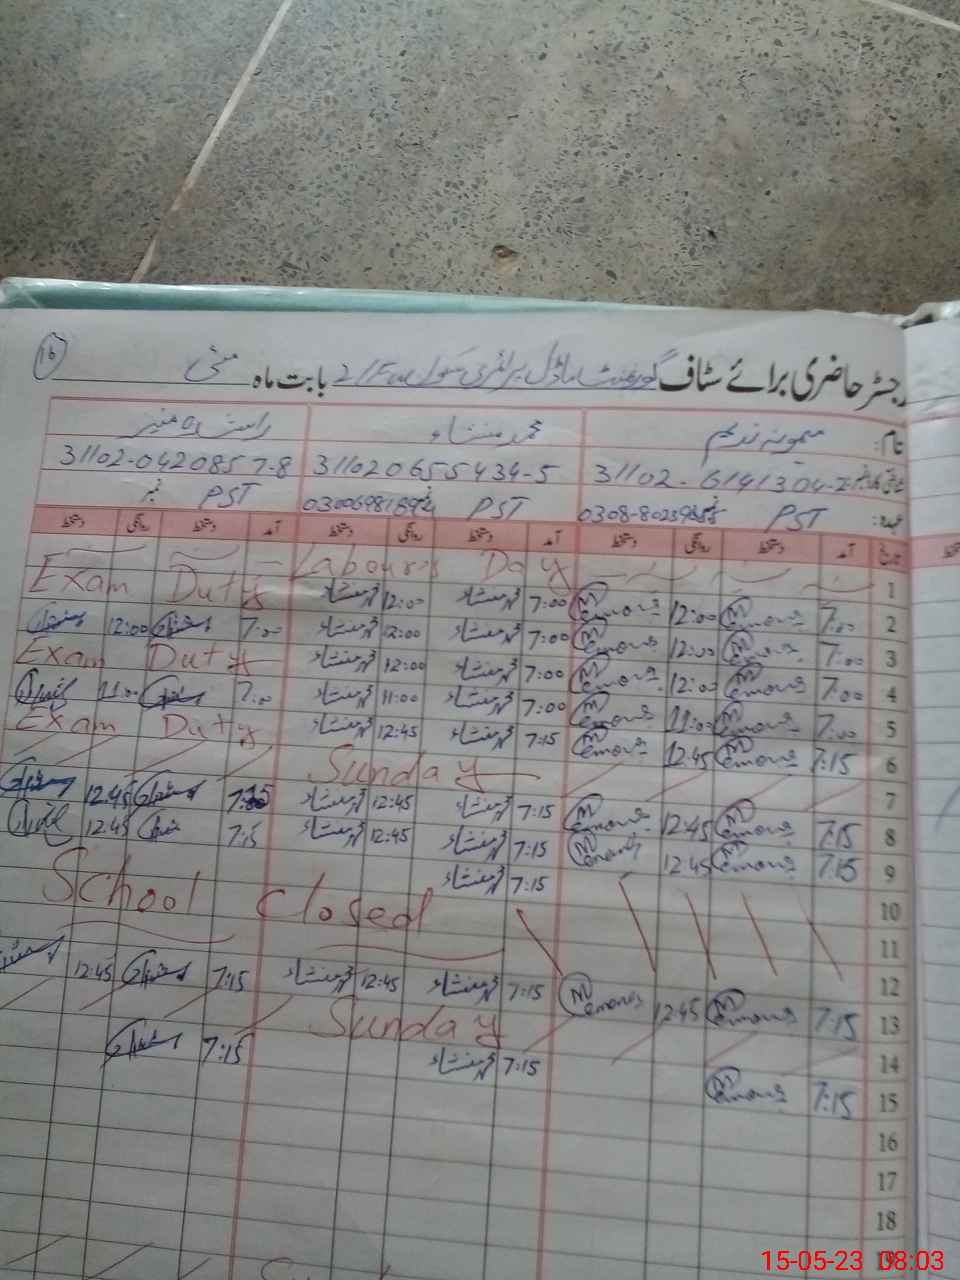 16
رجسٹر حاضری برائے سٹاف گورنمنٹ ماڈل پرائمری سکول بابت ماہ مئی
نام: میمونہ ندیم محمد منشاء
31102-6141304-2 31102 0655434-5 31102-0420857-8
عہدہ: PST PST PST
تاریخ آمد دستخط روانگی دستخط آمد دستخط روانگی دستخط آمد دستخط روانگی دستخط
1 Labour's Day
2 7:00 Memona 12:00 Memona 7:00 محمد منشاء 12:00 محمد منشاء Exam Duty
3 7:00 Memona 12:00 Memona 7:00 محمد منشاء 12:00 محمد منشاء 7:00 12:00
4 7:00 Memona 12:00 Memona 7:00 محمد منشاء 12:00 محمد منشاء Exam Duty
5 7:00 Memona 11:00 Memona 7:00 محمد منشاء 11:00 محمد منشاء 7:00 11:00
6 7:15 Memona 12:45 Memona 7:15 محمد منشاء 12:45 محمد منشاء Exam Duty
7 Sunday
8 7:15 Memona 12:45 Memona 7:15 محمد منشاء 12:45 محمد منشاء 12:45
9 7:15 Memona 12:45 Memona 7:15 محمد منشاء 12:45 محمد منشاء 7:15 12:45
10 7:15 محمد منشاء
11 School Closed
12
13 7:15 Memona 12:45 Memona 7:15 محمد منشاء 12:45 محمد منشاء 7:15 12:45
14 Sunday
15 7:15 Memona 7:15 محمد منشاء 7:15
16
17
18
19
15-05-23 08:03